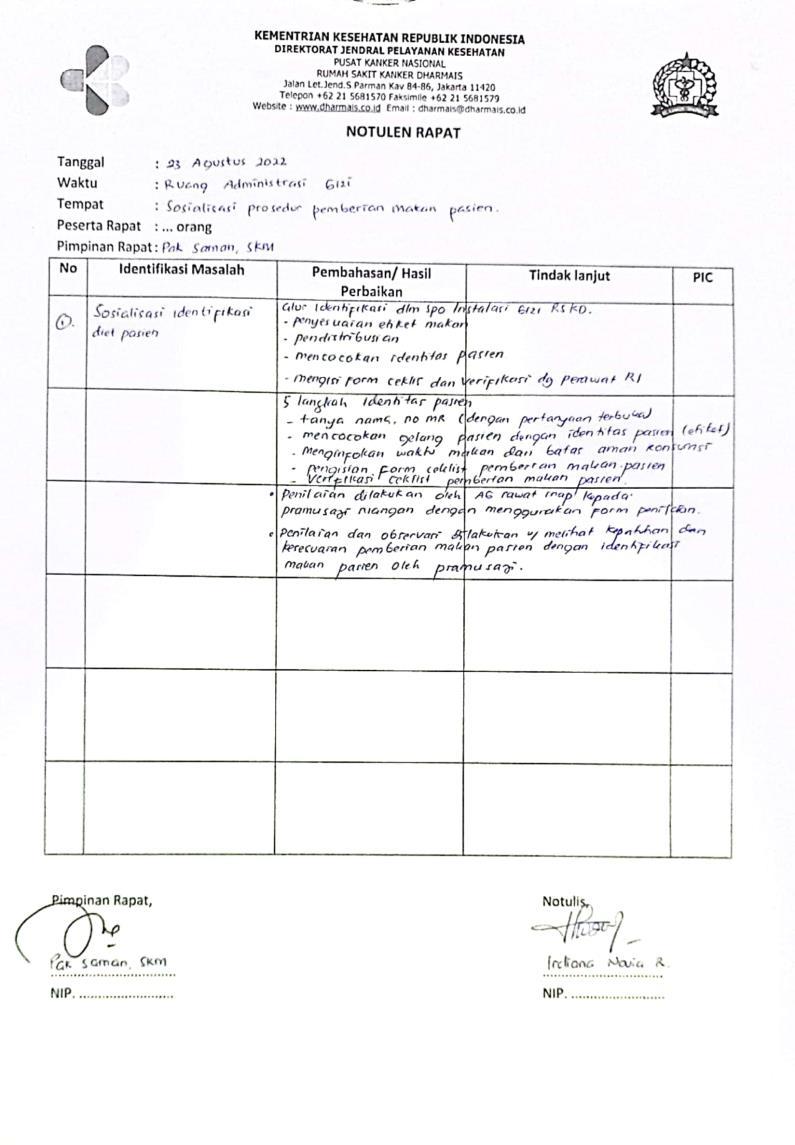 KEMENTRIAN KESEHATAN REPUBLIK INDONESIA
DIREKTORAT JENDRAL PELAYANAN KESEHATAN
PUSAT KANKER NASIONAL
RUMAH SAKIT KANKER DHARMAIS
Jalan Let.Jend.S Parman Kav 84-86, Jakarta 11420
Telepon +62 21 5681570 Faksimile +62 21 5681579
Website : www.dharmais.co.id Email : dharmais@dharmais.co.id
NOTULEN RAPAT
Tanggal : 23 Agustus 2022
Waktu : Ruang Administrasi Gizi
Tempat : Sosialisasi prosedur pemberian makan pasien.
Peserta Rapat : ... orang
Pimpinan Rapat : Pak Saman, SKM
No Identifikasi Masalah Pembahasan/ Hasil Perbaikan Tindak lanjut PIC
1. Sosialisasi identifikasi
diet pasien
Alur Identifikasi dlm SPO Instalasi Gizi RSKD.
- penyesuaian etiket makan
- pendistribusian
- mencocokan identitas pasien
- mengisi form ceklis dan verifikasi dg perawat RI
5 langkah identitas pasien
- tanya nama, no MR (dengan pertanyaan terbuka)
- mencocokan gelang pasien dengan identitas pasien (etiket)
- Menginfokan waktu makan dan batas aman konsumsi
- pengisian form ceklist pemberian makan pasien
- Verifikasi ceklist pemberian makan pasien.
• Penilaian dilakukan oleh AG rawat inap kepada
pramusaji ruangan dengan menggunakan form penilaian.
• Penilaian dan observasi dilakukan u/ melihat kepatuhan dan
kesesuaian pemberian makan pasien dengan identifikasi
makan pasien oleh pramusaji.
Pimpinan Rapat,
Pak Saman, SKM
NIP. ........................
Notulis,
Novia R.
NIP. ........................